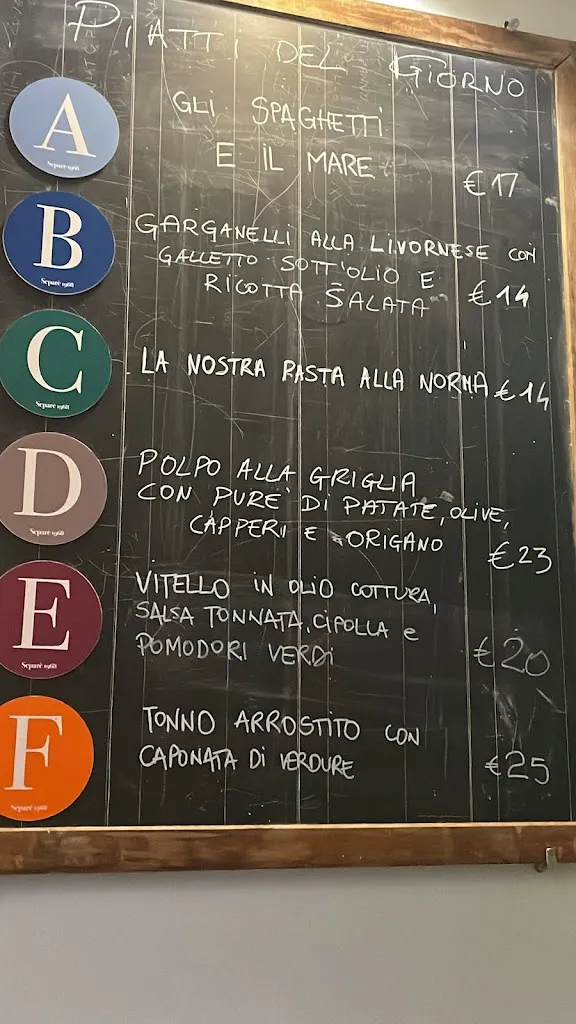 PIATTI DEL GIORNO
A
Separé 1968
GLI SPAGHETTI
E IL MARE
€17
B
Separé 1968
GARGANELLI ALLA LIVORNESE CON
GALLETTO SOTT'OLIO E
RICOTTA SALATA €14
C
Separé 1968
LA NOSTRA PASTA ALLA NORMA €14
D
Separé 1968
POLPO ALLA GRIGLIA
CON PURÈ DI PATATE, OLIVE,
CAPPERI E ORIGANO
€23
E
Separé 1968
VITELLO IN OLIO COTTURA,
SALSA TONNATA, CIPOLLA e
POMODORI VERDI €20
F
Separé 1968
TONNO ARROSTITO CON
CAPONATA DI VERDURE €25